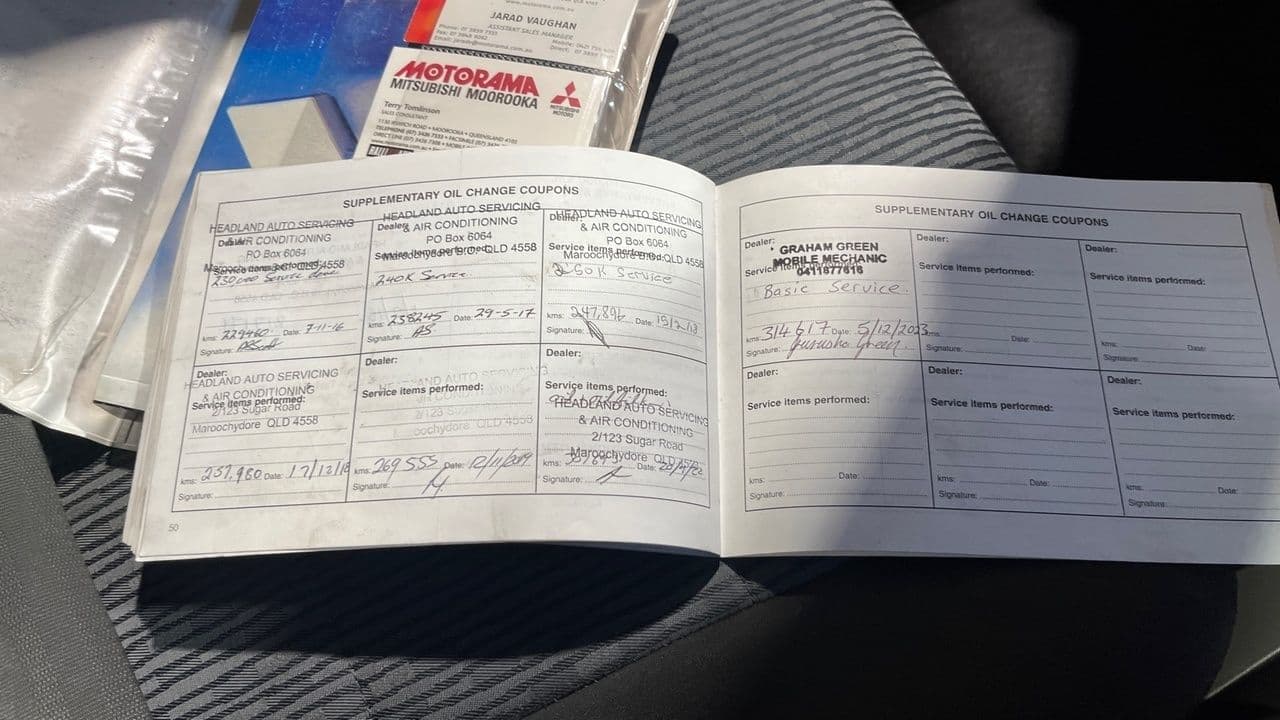 JARAD VAUGHAN
ASSISTANT SALES MANAGER
MOTORAMA
MITSUBISHI MOOROOKA
MITSUBISHI
MOTORS
Terry Tomlinson
SALES CONSULTANT
1130 IPSWICH ROAD • MOOROOKA • QUEENSLAND 4105
SUPPLEMENTARY OIL CHANGE COUPONS
HEADLAND AUTO SERVICING
Dealer:
& AIR CONDITIONING
PO Box 6064
Service items performed:
230,000 Service
kms: 229460 Date: 7-11-16
Signature:
HEADLAND AUTO SERVICING
Dealer:
& AIR CONDITIONING
PO Box 6064
Service items performed:
240K Service
kms: 238245 Date: 29-5-17
Signature: AS
HEADLAND AUTO SERVICING
Dealer:
& AIR CONDITIONING
PO Box 6064
Service items performed:
Maroochydore QLD 4558
250K Service
kms: 247,896 Date:
Signature:
Dealer:
HEADLAND AUTO SERVICING
& AIR CONDITIONING
Service items performed:
2/123 Sugar Road
Maroochydore QLD 4558
kms: 257,980 Date: 17/12/18
Signature:
Dealer:
HEADLAND AUTO SERVICING
Service items performed:
2/123 Sugar Road
Maroochydore QLD 4558
kms: 269 555 Date: 12/11/2019
Signature:
Dealer:
Service items performed:
HEADLAND AUTO SERVICING
& AIR CONDITIONING
2/123 Sugar Road
Maroochydore QLD 4558
kms: Date:
Signature:
50
SUPPLEMENTARY OIL CHANGE COUPONS
Dealer:
GRAHAM GREEN
MOBILE MECHANIC
0411877616
Service items performed:
Basic Service
kms: 314617 Date: 5/12/2023
Signature: Green
Dealer:
Service items performed:
kms: Date:
Signature:
Dealer:
Service items performed:
kms: Date:
Signature:
Dealer:
Service items performed:
kms: Date:
Signature:
Dealer:
Service items performed:
kms: Date:
Signature:
Dealer:
Service items performed:
kms: Date:
Signature: